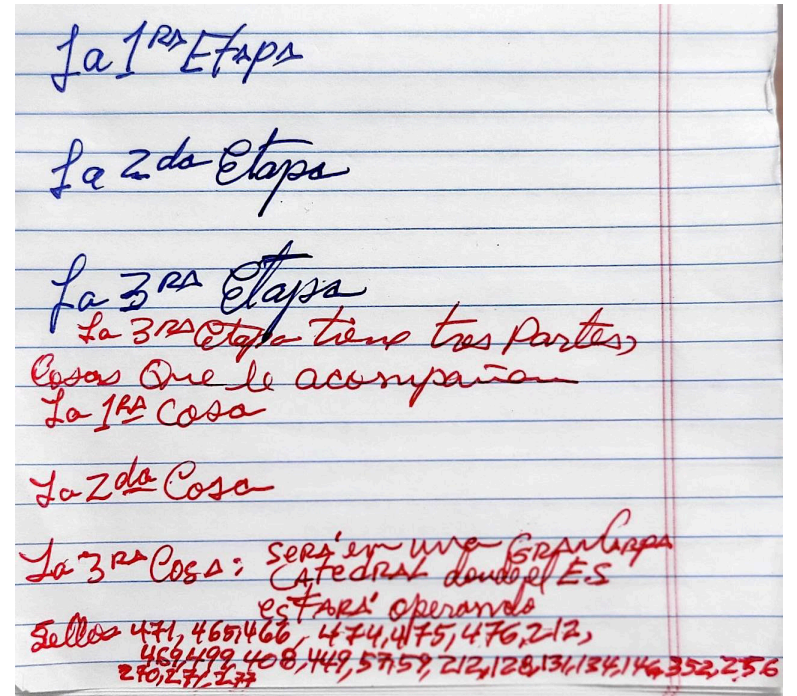 La 1RA Etapa
La 2da Etapa
La 3RA Etapa
La 3RA Etapa tiene tres Partes,
Cosas Que le acompañan
La 1RA Cosa
La 2da Cosa
La 3RA Cosa: SERÁ en una GRAN CARPA
CATEDRAL donde el E.S
ESTARÁ operando
Sellos 471, 465, 466, 474, 475, 476, 212,
469, 499, 408, 449, 57, 59, 212, 128, 131, 134, 146, 352, 256
270, 271, 277